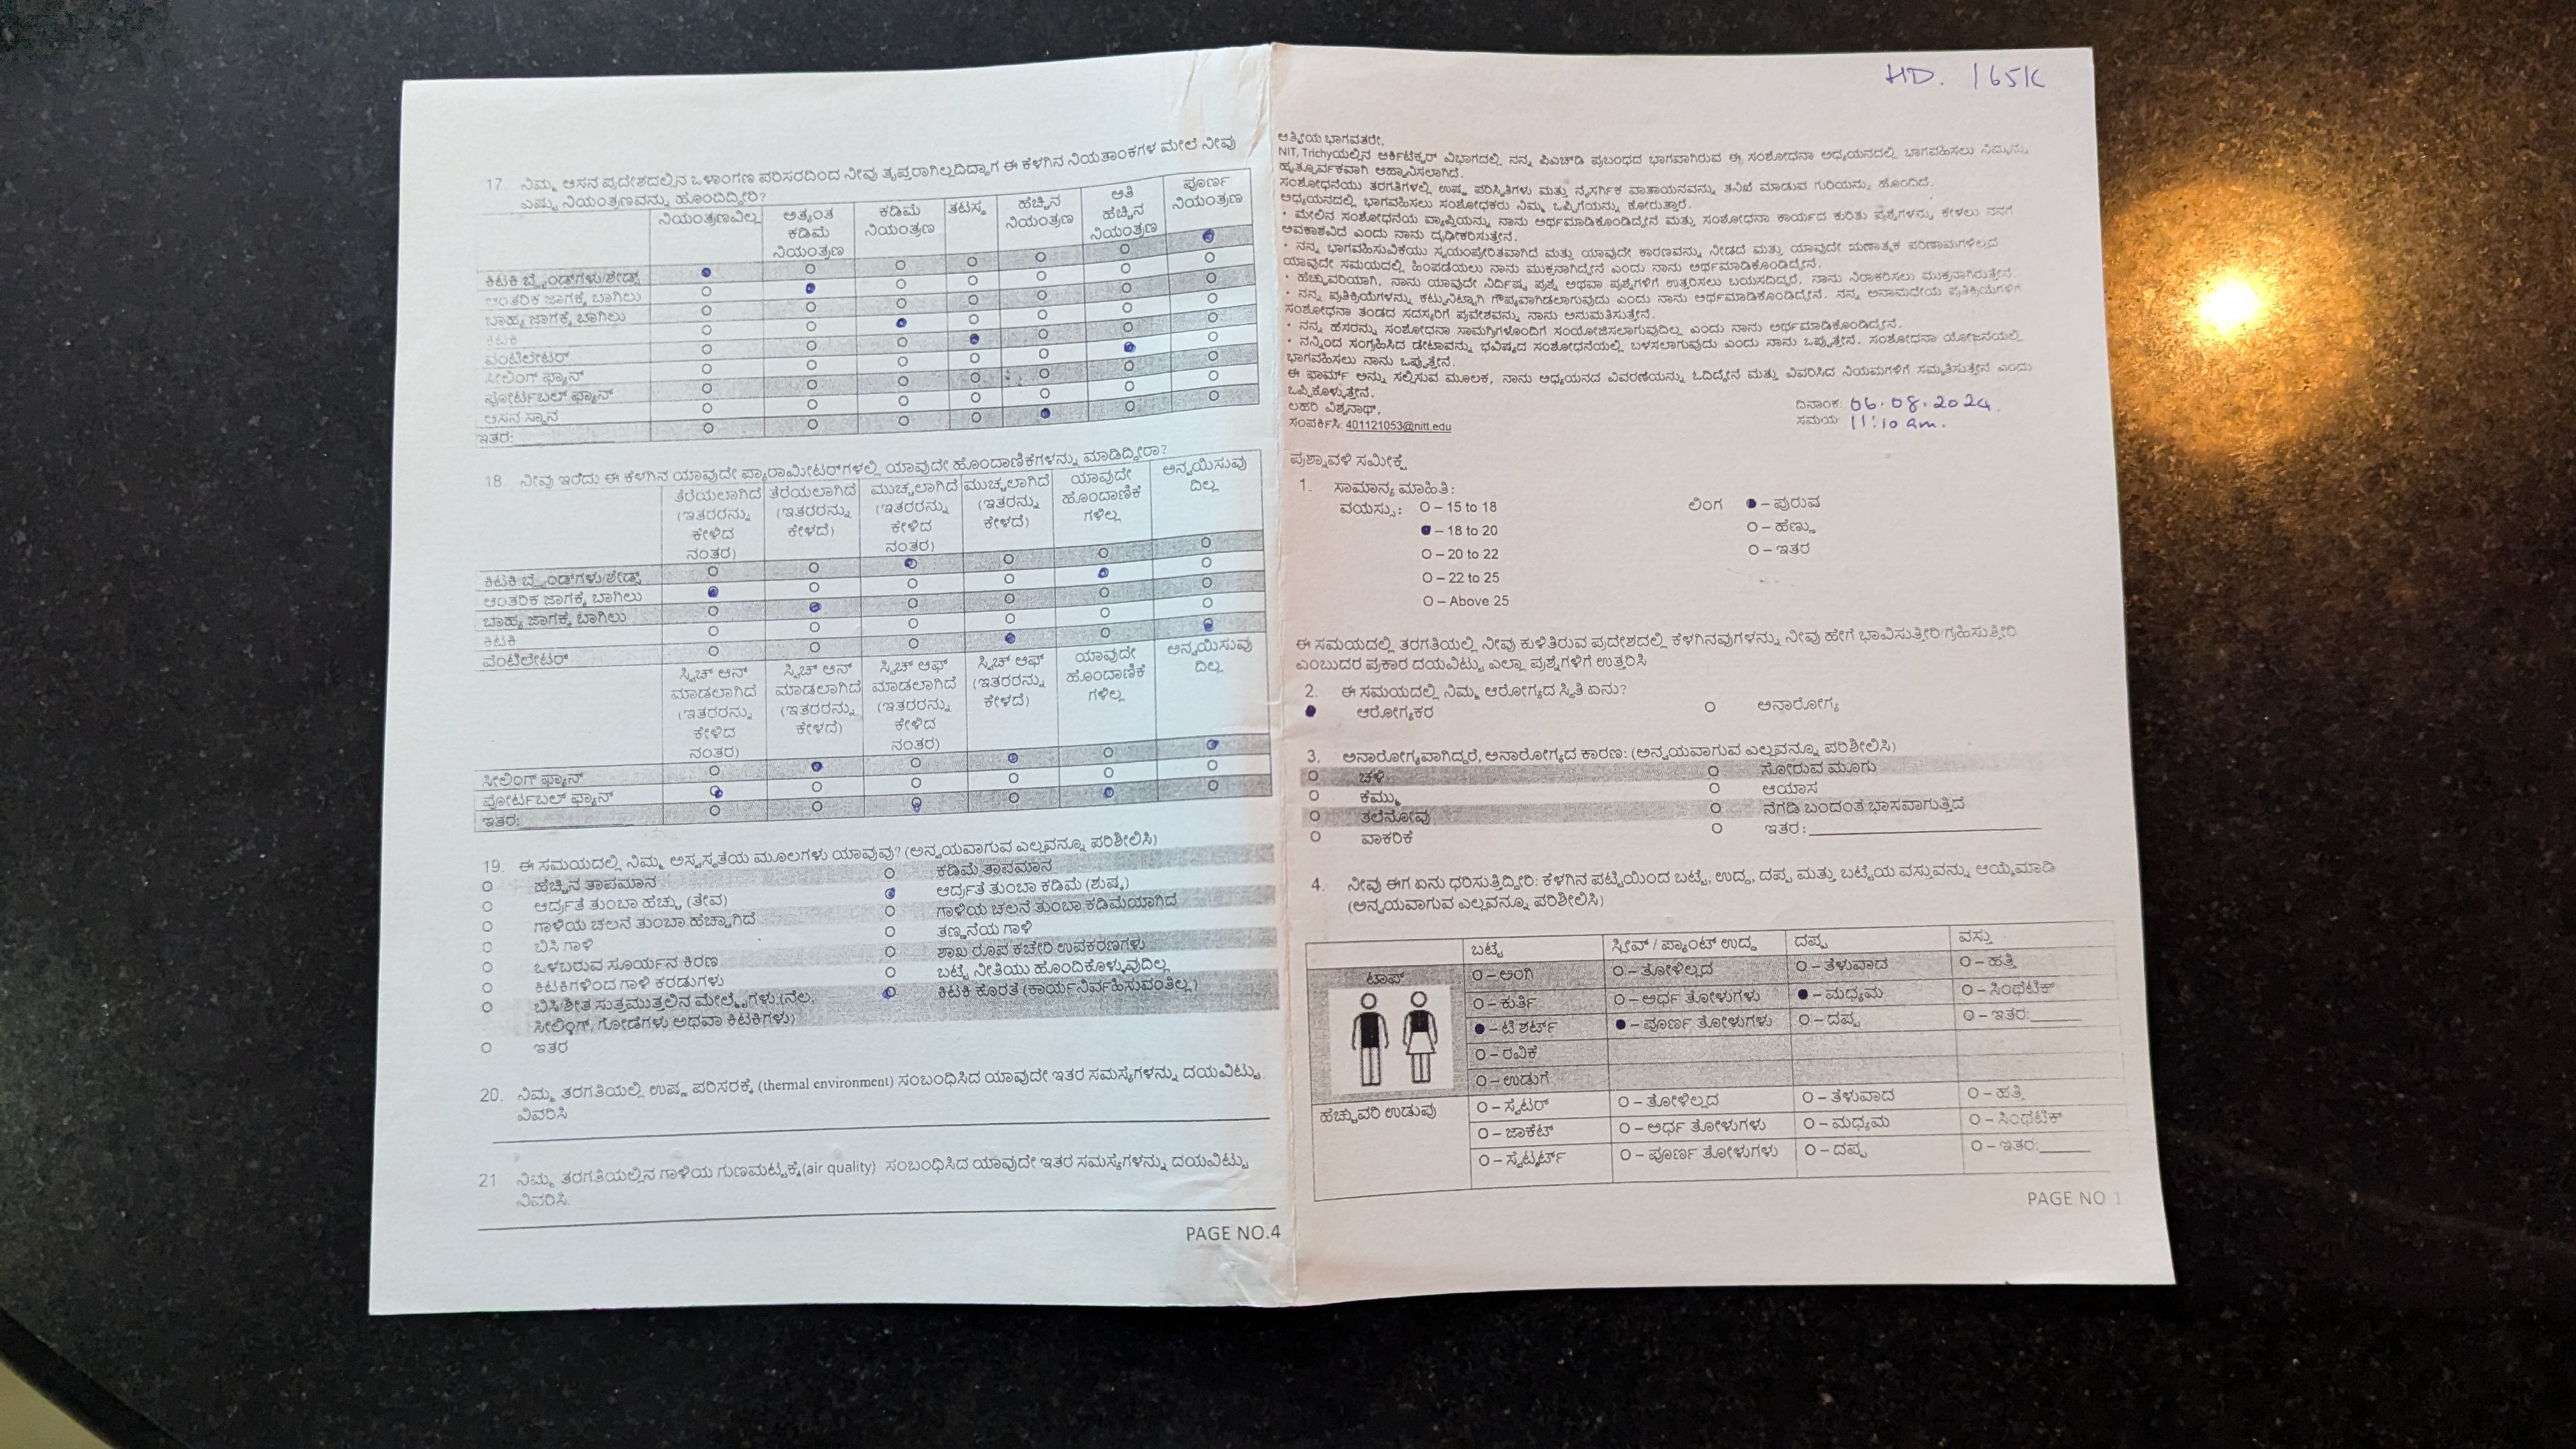 17. ನಿಮ್ಮ ಆಸನ ಪ್ರದೇಶದಲ್ಲಿನ ಒಳಾಂಗಣ ಪರಿಸರದಿಂದ ನೀವು ತೃಪ್ತರಾಗಿಲ್ಲದಿದ್ದಾಗ ಈ ಕೆಳಗಿನ ನಿಯತಾಂಕಗಳ ಮೇಲೆ ನೀವು
ಎಷ್ಟು ನಿಯಂತ್ರಣವನ್ನು ಹೊಂದಿದ್ದೀರಿ?
ನಿಯಂತ್ರಣವಿಲ್ಲ ಅತ್ಯಂತ ಕಡಿಮೆ ನಿಯಂತ್ರಣ ಕಡಿಮೆ ನಿಯಂತ್ರಣ ತಟಸ್ಥ ಹೆಚ್ಚಿನ ನಿಯಂತ್ರಣ ಅತಿ ಹೆಚ್ಚಿನ ನಿಯಂತ್ರಣ ಪೂರ್ಣ ನಿಯಂತ್ರಣ
ಕಿಟಕಿ ಬ್ಲೈಂಡ್‌ಗಳು/ಶೇಡ್ಸ್
ಆಂತರಿಕ ಜಾಗಕ್ಕೆ ಬಾಗಿಲು
ಬಾಹ್ಯ ಜಾಗಕ್ಕೆ ಬಾಗಿಲು
ಕಿಟಕಿ
ವೆಂಟಿಲೇಟರ್
ಸೀಲಿಂಗ್ ಫ್ಯಾನ್
ಪೋರ್ಟಬಲ್ ಫ್ಯಾನ್
ಆಸನ ಸ್ಥಾನ
ಇತರ:
18 ನೀವು ಇಂದು ಈ ಕೆಳಗಿನ ಯಾವುದೇ ಪ್ಯಾರಾಮೀಟರ್‌ಗಳಲ್ಲಿ ಯಾವುದೇ ಹೊಂದಾಣಿಕೆಗಳನ್ನು ಮಾಡಿದ್ದೀರಾ?
ತೆರೆಯಲಾಗಿದೆ (ಇತರರನ್ನು ಕೇಳಿದ ನಂತರ) ತೆರೆಯಲಾಗಿದೆ (ಇತರರನ್ನು ಕೇಳದೆ) ಮುಚ್ಚಲಾಗಿದೆ (ಇತರರನ್ನು ಕೇಳಿದ ನಂತರ) ಮುಚ್ಚಲಾಗಿದೆ (ಇತರನ್ನು ಕೇಳದೆ) ಯಾವುದೇ ಹೊಂದಾಣಿಕೆ ಗಳಿಲ್ಲ ಅನ್ವಯಿಸುವು ದಿಲ್ಲ
ಕಿಟಕಿ ಬ್ಲೈಂಡ್‌ಗಳು/ಶೇಡ್ಸ್
ಆಂತರಿಕ ಜಾಗಕ್ಕೆ ಬಾಗಿಲು
ಬಾಹ್ಯ ಜಾಗಕ್ಕೆ ಬಾಗಿಲು
ಕಿಟಕಿ
ವೆಂಟಿಲೇಟರ್
ಸ್ವಿಚ್ ಆನ್ ಮಾಡಲಾಗಿದೆ (ಇತರರನ್ನು ಕೇಳಿದ ನಂತರ) ಸ್ವಿಚ್ ಆನ್ ಮಾಡಲಾಗಿದೆ (ಇತರರನ್ನು ಕೇಳದೆ) ಸ್ವಿಚ್ ಆಫ್ ಮಾಡಲಾಗಿದೆ (ಇತರರನ್ನು ಕೇಳಿದ ನಂತರ) ಸ್ವಿಚ್ ಆಫ್ (ಇತರರನ್ನು ಕೇಳದೆ) ಯಾವುದೇ ಹೊಂದಾಣಿಕೆ ಗಳಿಲ್ಲ ಅನ್ವಯಿಸುವು ದಿಲ್ಲ
ಸೀಲಿಂಗ್ ಫ್ಯಾನ್
ಪೋರ್ಟಬಲ್ ಫ್ಯಾನ್
ಇತರ:
19. ಈ ಸಮಯದಲ್ಲಿ ನಿಮ್ಮ ಅಸ್ವಸ್ಥತೆಯ ಮೂಲಗಳು ಯಾವುವು? (ಅನ್ವಯವಾಗುವ ಎಲ್ಲವನ್ನೂ ಪರಿಶೀಲಿಸಿ)
ಹೆಚ್ಚಿನ ತಾಪಮಾನ ಕಡಿಮೆ ತಾಪಮಾನ
ಆರ್ದ್ರತೆ ತುಂಬಾ ಹೆಚ್ಚು (ತೇವ) ಆರ್ದ್ರತೆ ತುಂಬಾ ಕಡಿಮೆ (ಶುಷ್ಕ)
ಗಾಳಿಯ ಚಲನೆ ತುಂಬಾ ಹೆಚ್ಚಾಗಿದೆ ಗಾಳಿಯ ಚಲನೆ ತುಂಬಾ ಕಡಿಮೆಯಾಗಿದೆ
ಬಿಸಿ ಗಾಳಿ ತಣ್ಣನೆಯ ಗಾಳಿ
ಒಳಬರುವ ಸೂರ್ಯನ ಕಿರಣ ಶಾಖ ರೂಪ ಕಚೇರಿ ಉಪಕರಣಗಳು
ಕಿಟಕಿಗಳಿಂದ ಗಾಳಿ ಕರಡುಗಳು ಬಟ್ಟೆ ನೀತಿಯು ಹೊಂದಿಕೊಳ್ಳುವುದಿಲ್ಲ
ಬಿಸಿ/ಶೀತ ಸುತ್ತಮುತ್ತಲಿನ ಮೇಲ್ಮೈಗಳು (ನೆಲ, ಕಿಟಕಿ ಕೊರತೆ (ಕಾರ್ಯನಿರ್ವಹಿಸುವಂತಿಲ್ಲ)
ಸೀಲಿಂಗ್, ಗೋಡೆಗಳು ಅಥವಾ ಕಿಟಕಿಗಳು)
ಇತರ
20. ನಿಮ್ಮ ತರಗತಿಯಲ್ಲಿ ಉಷ್ಣ ಪರಿಸರಕ್ಕೆ (thermal environment) ಸಂಬಂಧಿಸಿದ ಯಾವುದೇ ಇತರ ಸಮಸ್ಯೆಗಳನ್ನು ದಯವಿಟ್ಟು
ವಿವರಿಸಿ
21 ನಿಮ್ಮ ತರಗತಿಯಲ್ಲಿನ ಗಾಳಿಯ ಗುಣಮಟ್ಟಕ್ಕೆ(air quality) ಸಂಬಂಧಿಸಿದ ಯಾವುದೇ ಇತರ ಸಮಸ್ಯೆಗಳನ್ನು ದಯವಿಟ್ಟು
ವಿವರಿಸಿ.
PAGE NO.4
HD. 165K
ಆತ್ಮೀಯ ಭಾಗವತರೇ,
NIT, Trichyಯಲ್ಲಿನ ಆರ್ಕಿಟೆಕ್ಚರ್ ವಿಭಾಗದಲ್ಲಿ ನನ್ನ ಪಿಎಚ್‌ಡಿ ಪ್ರಬಂಧದ ಭಾಗವಾಗಿರುವ ಈ ಸಂಶೋಧನಾ ಅಧ್ಯಯನದಲ್ಲಿ ಭಾಗವಹಿಸಲು ನಿಮ್ಮನ್ನು
ಹೃತ್ಪೂರ್ವಕವಾಗಿ ಆಹ್ವಾನಿಸಲಾಗಿದೆ.
ಸಂಶೋಧನೆಯು ತರಗತಿಗಳಲ್ಲಿ ಉಷ್ಣ ಪರಿಸ್ಥಿತಿಗಳು ಮತ್ತು ನೈಸರ್ಗಿಕ ವಾತಾಯನವನ್ನು ತನಿಖೆ ಮಾಡುವ ಗುರಿಯನ್ನು ಹೊಂದಿದೆ.
ಅಧ್ಯಯನದಲ್ಲಿ ಭಾಗವಹಿಸಲು ಸಂಶೋಧಕರು ನಿಮ್ಮ ಒಪ್ಪಿಗೆಯನ್ನು ಕೋರುತ್ತಾರೆ.
• ಮೇಲಿನ ಸಂಶೋಧನೆಯ ವ್ಯಾಪ್ತಿಯನ್ನು ನಾನು ಅರ್ಥಮಾಡಿಕೊಂಡಿದ್ದೇನೆ ಮತ್ತು ಸಂಶೋಧನಾ ಕಾರ್ಯದ ಕುರಿತು ಪ್ರಶ್ನೆಗಳನ್ನು ಕೇಳಲು ನನಗೆ
ಅವಕಾಶವಿದೆ ಎಂದು ನಾನು ದೃಢೀಕರಿಸುತ್ತೇನೆ.
• ನನ್ನ ಭಾಗವಹಿಸುವಿಕೆಯು ಸ್ವಯಂಪ್ರೇರಿತವಾಗಿದೆ ಮತ್ತು ಯಾವುದೇ ಕಾರಣವನ್ನು ನೀಡದೆ ಮತ್ತು ಯಾವುದೇ ಋಣಾತ್ಮಕ ಪರಿಣಾಮಗಳಿಲ್ಲದೆ
ಯಾವುದೇ ಸಮಯದಲ್ಲಿ ಹಿಂಪಡೆಯಲು ನಾನು ಮುಕ್ತನಾಗಿದ್ದೇನೆ ಎಂದು ನಾನು ಅರ್ಥಮಾಡಿಕೊಂಡಿದ್ದೇನೆ.
• ಹೆಚ್ಚುವರಿಯಾಗಿ, ನಾನು ಯಾವುದೇ ನಿರ್ದಿಷ್ಟ ಪ್ರಶ್ನೆ ಅಥವಾ ಪ್ರಶ್ನೆಗಳಿಗೆ ಉತ್ತರಿಸಲು ಬಯಸದಿದ್ದರೆ, ನಾನು ನಿರಾಕರಿಸಲು ಮುಕ್ತನಾಗಿರುತ್ತೇನೆ.
• ನನ್ನ ಪ್ರತಿಕ್ರಿಯೆಗಳನ್ನು ಕಟ್ಟುನಿಟ್ಟಾಗಿ ಗೌಪ್ಯವಾಗಿಡಲಾಗುವುದು ಎಂದು ನಾನು ಅರ್ಥಮಾಡಿಕೊಂಡಿದ್ದೇನೆ. ನನ್ನ ಅನಾಮಧೇಯ ಪ್ರತಿಕ್ರಿಯೆಗಳಿಗೆ
ಸಂಶೋಧನಾ ತಂಡದ ಸದಸ್ಯರಿಗೆ ಪ್ರವೇಶವನ್ನು ನಾನು ಅನುಮತಿಸುತ್ತೇನೆ.
• ನನ್ನ ಹೆಸರನ್ನು ಸಂಶೋಧನಾ ಸಾಮಗ್ರಿಗಳೊಂದಿಗೆ ಸಂಯೋಜಿಸಲಾಗುವುದಿಲ್ಲ ಎಂದು ನಾನು ಅರ್ಥಮಾಡಿಕೊಂಡಿದ್ದೇನೆ.
• ನನ್ನಿಂದ ಸಂಗ್ರಹಿಸಿದ ಡೇಟಾವನ್ನು ಭವಿಷ್ಯದ ಸಂಶೋಧನೆಯಲ್ಲಿ ಬಳಸಲಾಗುವುದು ಎಂದು ನಾನು ಒಪ್ಪುತ್ತೇನೆ. ಸಂಶೋಧನಾ ಯೋಜನೆಯಲ್ಲಿ
ಭಾಗವಹಿಸಲು ನಾನು ಒಪ್ಪುತ್ತೇನೆ.
ಈ ಫಾರ್ಮ್ ಅನ್ನು ಸಲ್ಲಿಸುವ ಮೂಲಕ, ನಾನು ಅಧ್ಯಯನದ ವಿವರಣೆಯನ್ನು ಓದಿದ್ದೇನೆ ಮತ್ತು ವಿವರಿಸಿದ ನಿಯಮಗಳಿಗೆ ಸಮ್ಮತಿಸುತ್ತೇನೆ ಎಂದು
ಒಪ್ಪಿಕೊಳ್ಳುತ್ತೇನೆ.
ಲಹರಿ ವಿಶ್ವನಾಥ್, ದಿನಾಂಕ: 06.08.2024.
ಸಂಪರ್ಕಿಸಿ: 401121053@nitt.edu ಸಮಯ: 11:10 am.
ಪ್ರಶ್ನಾವಳಿ ಸಮೀಕ್ಷೆ
1. ಸಾಮಾನ್ಯ ಮಾಹಿತಿ:
ವಯಸ್ಸು: O – 15 to 18 ಲಿಂಗ – ಪುರುಷ
– 18 to 20 O – ಹೆಣ್ಣು
O – 20 to 22 O – ಇತರ
O – 22 to 25
O – Above 25
ಈ ಸಮಯದಲ್ಲಿ ತರಗತಿಯಲ್ಲಿ ನೀವು ಕುಳಿತಿರುವ ಪ್ರದೇಶದಲ್ಲಿ ಕೆಳಗಿನವುಗಳನ್ನು ನೀವು ಹೇಗೆ ಭಾವಿಸುತ್ತೀರಿ/ಗ್ರಹಿಸುತ್ತೀರಿ
ಎಂಬುದರ ಪ್ರಕಾರ ದಯವಿಟ್ಟು ಎಲ್ಲಾ ಪ್ರಶ್ನೆಗಳಿಗೆ ಉತ್ತರಿಸಿ
2. ಈ ಸಮಯದಲ್ಲಿ ನಿಮ್ಮ ಆರೋಗ್ಯದ ಸ್ಥಿತಿ ಏನು?
ಆರೋಗ್ಯಕರ O ಅನಾರೋಗ್ಯ
3. ಅನಾರೋಗ್ಯವಾಗಿದ್ದರೆ, ಅನಾರೋಗ್ಯದ ಕಾರಣ: (ಅನ್ವಯವಾಗುವ ಎಲ್ಲವನ್ನೂ ಪರಿಶೀಲಿಸಿ)
O ಚಳಿ O ಸೋರುವ ಮೂಗು
O ಕೆಮ್ಮು O ಆಯಾಸ
O ತಲೆನೋವು O ನೆಗಡಿ ಬಂದಂತೆ ಭಾಸವಾಗುತ್ತಿದೆ
O ವಾಕರಿಕೆ O ಇತರ:
4. ನೀವು ಈಗ ಏನು ಧರಿಸುತ್ತಿದ್ದೀರಿ: ಕೆಳಗಿನ ಪಟ್ಟಿಯಿಂದ ಬಟ್ಟೆ, ಉದ್ದ, ದಪ್ಪ ಮತ್ತು ಬಟ್ಟೆಯ ವಸ್ತುವನ್ನು ಆಯ್ಕೆಮಾಡಿ
(ಅನ್ವಯವಾಗುವ ಎಲ್ಲವನ್ನೂ ಪರಿಶೀಲಿಸಿ)
ಬಟ್ಟೆ ಸ್ಲೀವ್ / ಪ್ಯಾಂಟ್ ಉದ್ದ ದಪ್ಪ ವಸ್ತು
ಟಾಪ್ O – ಅಂಗಿ O – ತೋಳಿಲ್ಲದ O – ತೆಳುವಾದ O – ಹತ್ತಿ
O – ಕುರ್ತಿ O – ಅರ್ಧ ತೋಳುಗಳು – ಮಧ್ಯಮ O – ಸಿಂಥೆಟಿಕ್
– ಟಿ ಶರ್ಟ್ – ಪೂರ್ಣ ತೋಳುಗಳು O – ದಪ್ಪ O – ಇತರ:
O – ರವಿಕೆ
O – ಉಡುಗೆ
ಹೆಚ್ಚುವರಿ ಉಡುಪು O – ಸ್ವೆಟರ್ O – ತೋಳಿಲ್ಲದ O – ತೆಳುವಾದ O – ಹತ್ತಿ
O – ಜಾಕೆಟ್ O – ಅರ್ಧ ತೋಳುಗಳು O – ಮಧ್ಯಮ O – ಸಿಂಥೆಟಿಕ್
O – ಸ್ವೆಟ್ಶರ್ಟ್ O – ಪೂರ್ಣ ತೋಳುಗಳು O – ದಪ್ಪ O – ಇತರ:
PAGE NO 1